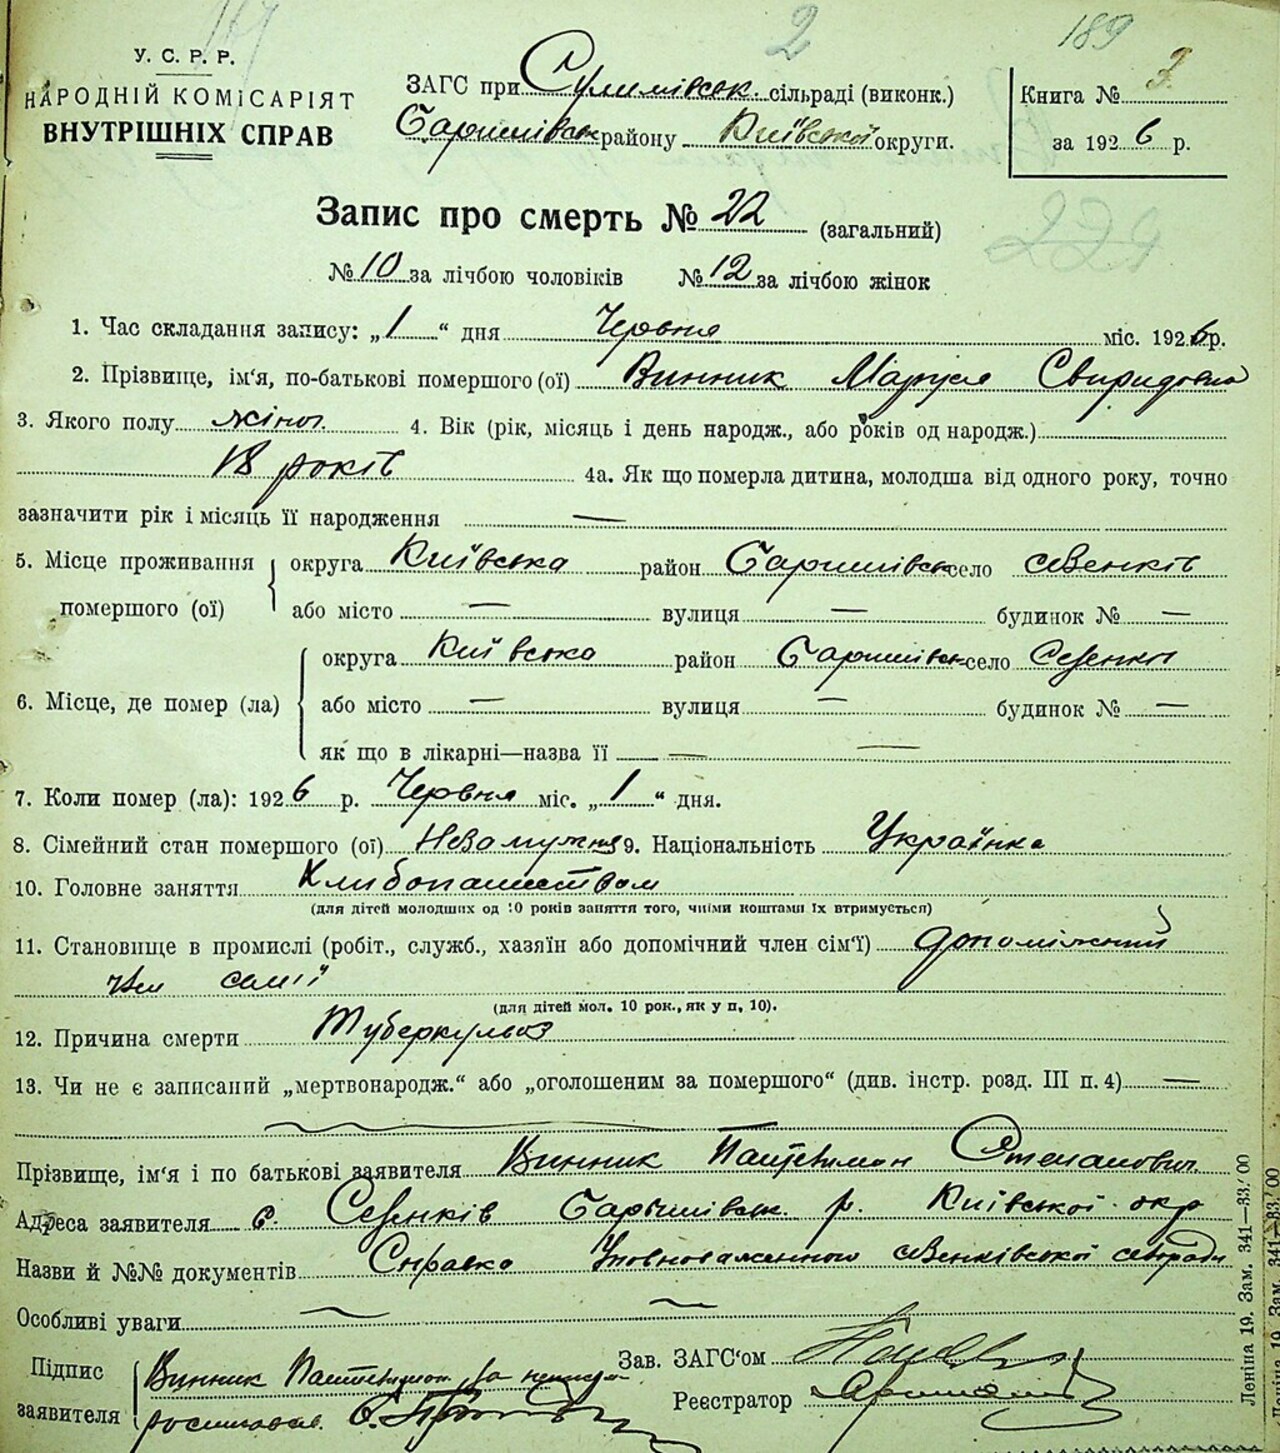 189
2
У. С. Р. Р.
НАРОДНІЙ КОМІСАРІЯТ
ВНУТРІШНІХ СПРАВ
ЗАГС при Сулимівськ. сільраді (виконк.)
Баришівськ району Київської округи.
Книга № 3
за 1926 р.
229
Запис про смерть № 22 (загальний)
№ 10 за лічбою чоловіків № 12 за лічбою жінок
1. Час складання запису: „1“ дня Червня міс. 1926 р.
2. Прізвище, ім'я, по-батькові помершого (ої) Винник Маруся Свиридовна
3. Якого полу жіноч. 4. Вік (рік, місяць і день народж., або років од народж.)
18 років 4а. Як що померла дитина, молодша від одного року, точно
зазначити рік і місяць її народження —
5. Місце проживання помершого (ої) округа Київська район Баришівськ село Сезенків
або місто — вулиця — будинок № —
6. Місце, де помер (ла) округа Київська район Баришівськ село Сезенки
або місто — вулиця — будинок № —
як що в лікарні—назва її — —
7. Коли помер (ла): 1926 р. Червня міс. „1“ дня.
8. Сімейний стан помершого (ої) Незамужня 9. Національність Українка
10. Головне заняття Хлибопашеством
(для дітей молодших од 10 років заняття того, чиїми коштами їх втримується)
11. Становище в промислі (робіт., служб., хазяїн або допомічний член сім'ї) допоміжний
член семії
(для дітей мол. 10 рок., як у п, 10).
12. Причина смерти Туберкульоз
13. Чи не є записаний „мертвонародж.“ або „оголошеним за помершого“ (див. інстр. розд. III п. 4) —
Прізвище, ім'я і по батькові заявителя Винник Пантелимон Степанович
Адреса заявителя с. Сезенків Баришівськ. р. Київської окр
Назви й №№ документів Справка Уповноваженного Сезенківської сельради
Особливі уваги
Підпис заявителя Винник Пантелимон за неписьм
росписався
Зав. ЗАГС'ом
Реєстратор
Леніна 19. Зам. 341—33.'00
Леніна 19. Зам. 341—33.'00